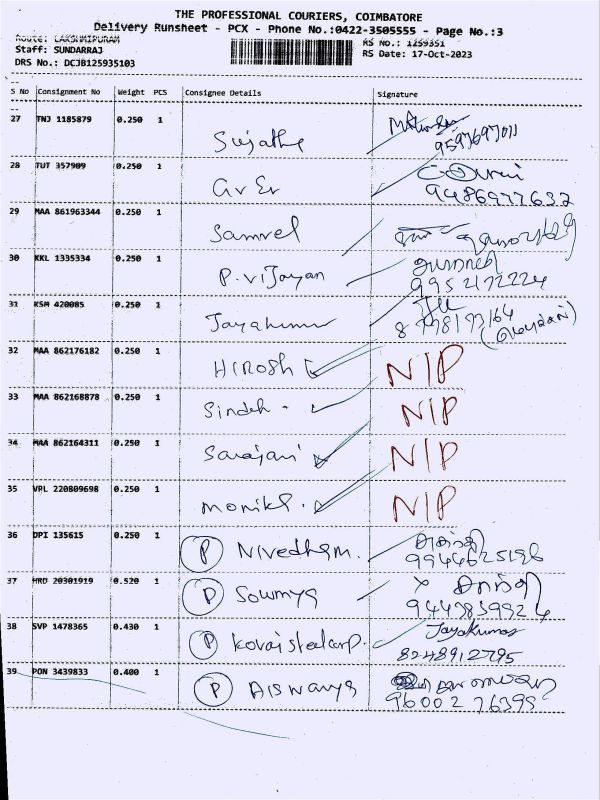 THE PROFESSIONAL COURIERS, COIMBATORE
Delivery Runsheet - PCX - Phone No.:0422-3505555 - Page No.:3
Route: LAKSHMIPURAM
RS No.: 1259351
Staff: SUNDARRAJ
RS Date: 17-Oct-2023
DRS No.: DCJB125935103
S No Consignment No Weight PCS Consignee Details Signature
27 TNJ 1185879 0.250 1
Sujatha
28 TUT 357909 0.250 1
Gr Er
9486977632
29 MAA 861963344 0.250 1
Samvel
30 KKL 1335334 0.250 1
P. Vijayan
9952172224
31 KSM 420085 0.250 1
Jayakumar
8778173164
32 MAA 862176182 0.250 1
Hirosh N/P
33 MAA 862168878 0.250 1
Sindeh N/P
34 MAA 862164311 0.250 1
Sarajani N/P
35 VPL 220809698 0.250 1
Monikh. N/P
36 DPI 135615 0.250 1
P Nivedham.
9944625196
37 HRD 20301919 0.520 1
P Sowmya X
9443839924
38 SVP 1478365 0.430 1
P Kovai steelcorp. Jayakumar
8248912795
39 PON 3439833 0.400 1
P Aiswarya
96002 76395